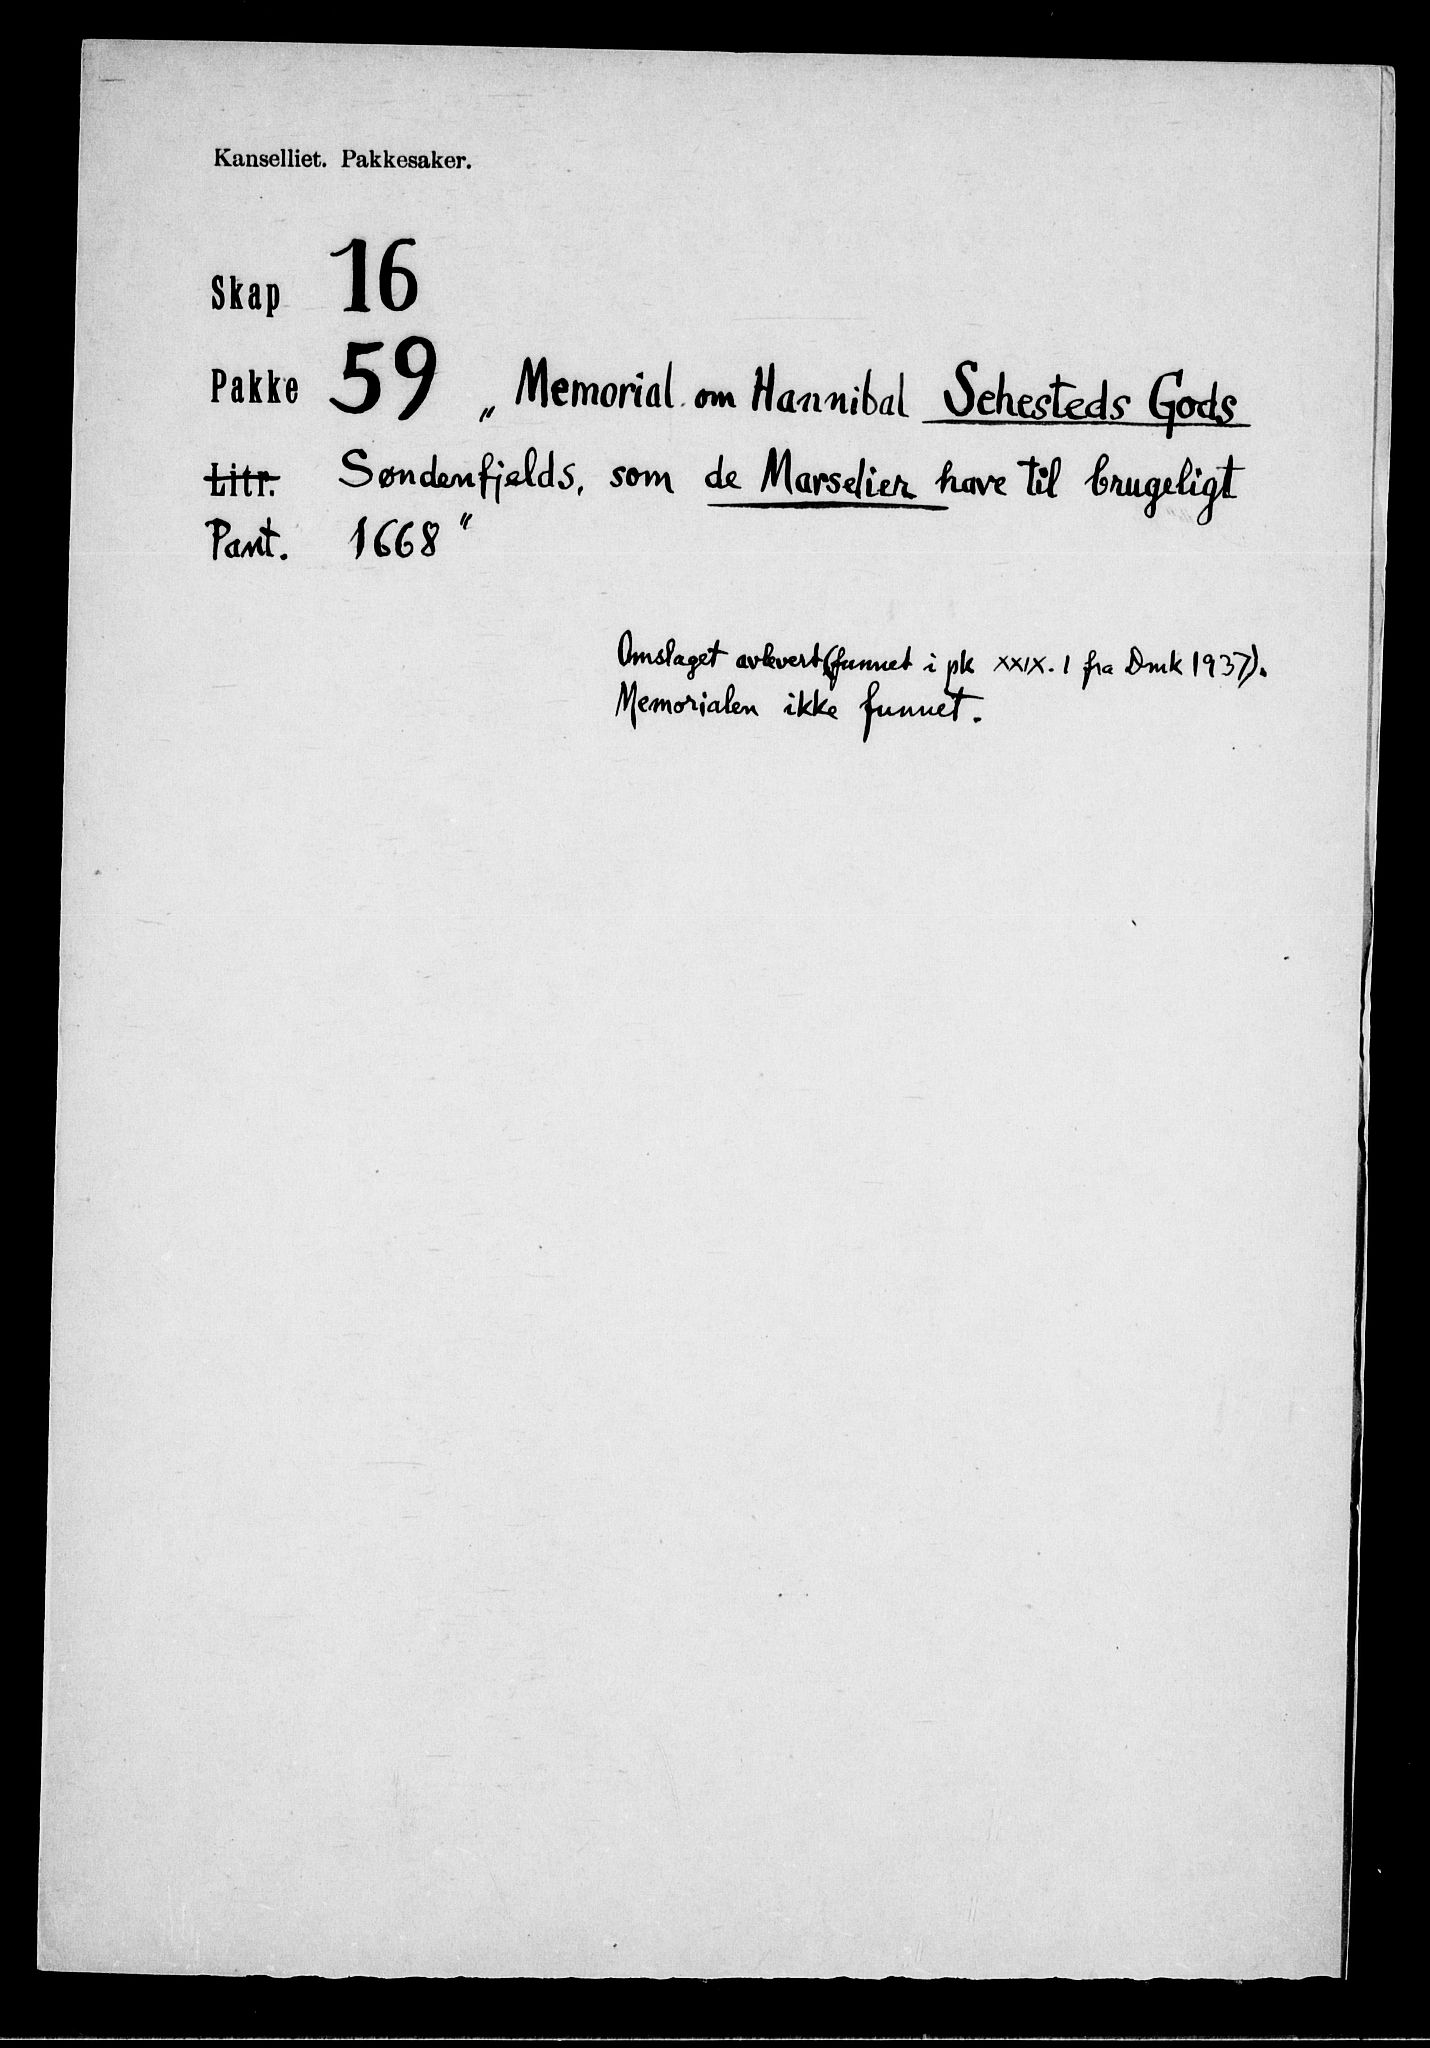 Kanselliet. Pakkesaker.
Skap 16
Pakke 59 „Memorial om Hannibal Sehesteds Gods
Litr. Søndenfjelds, som de Marselier have til brugeligt
Pant. 1668"
Omslaget avlevert (funnet i pk XXIX. 1 fra Dmk 1937).
Memorialen ikke funnet.